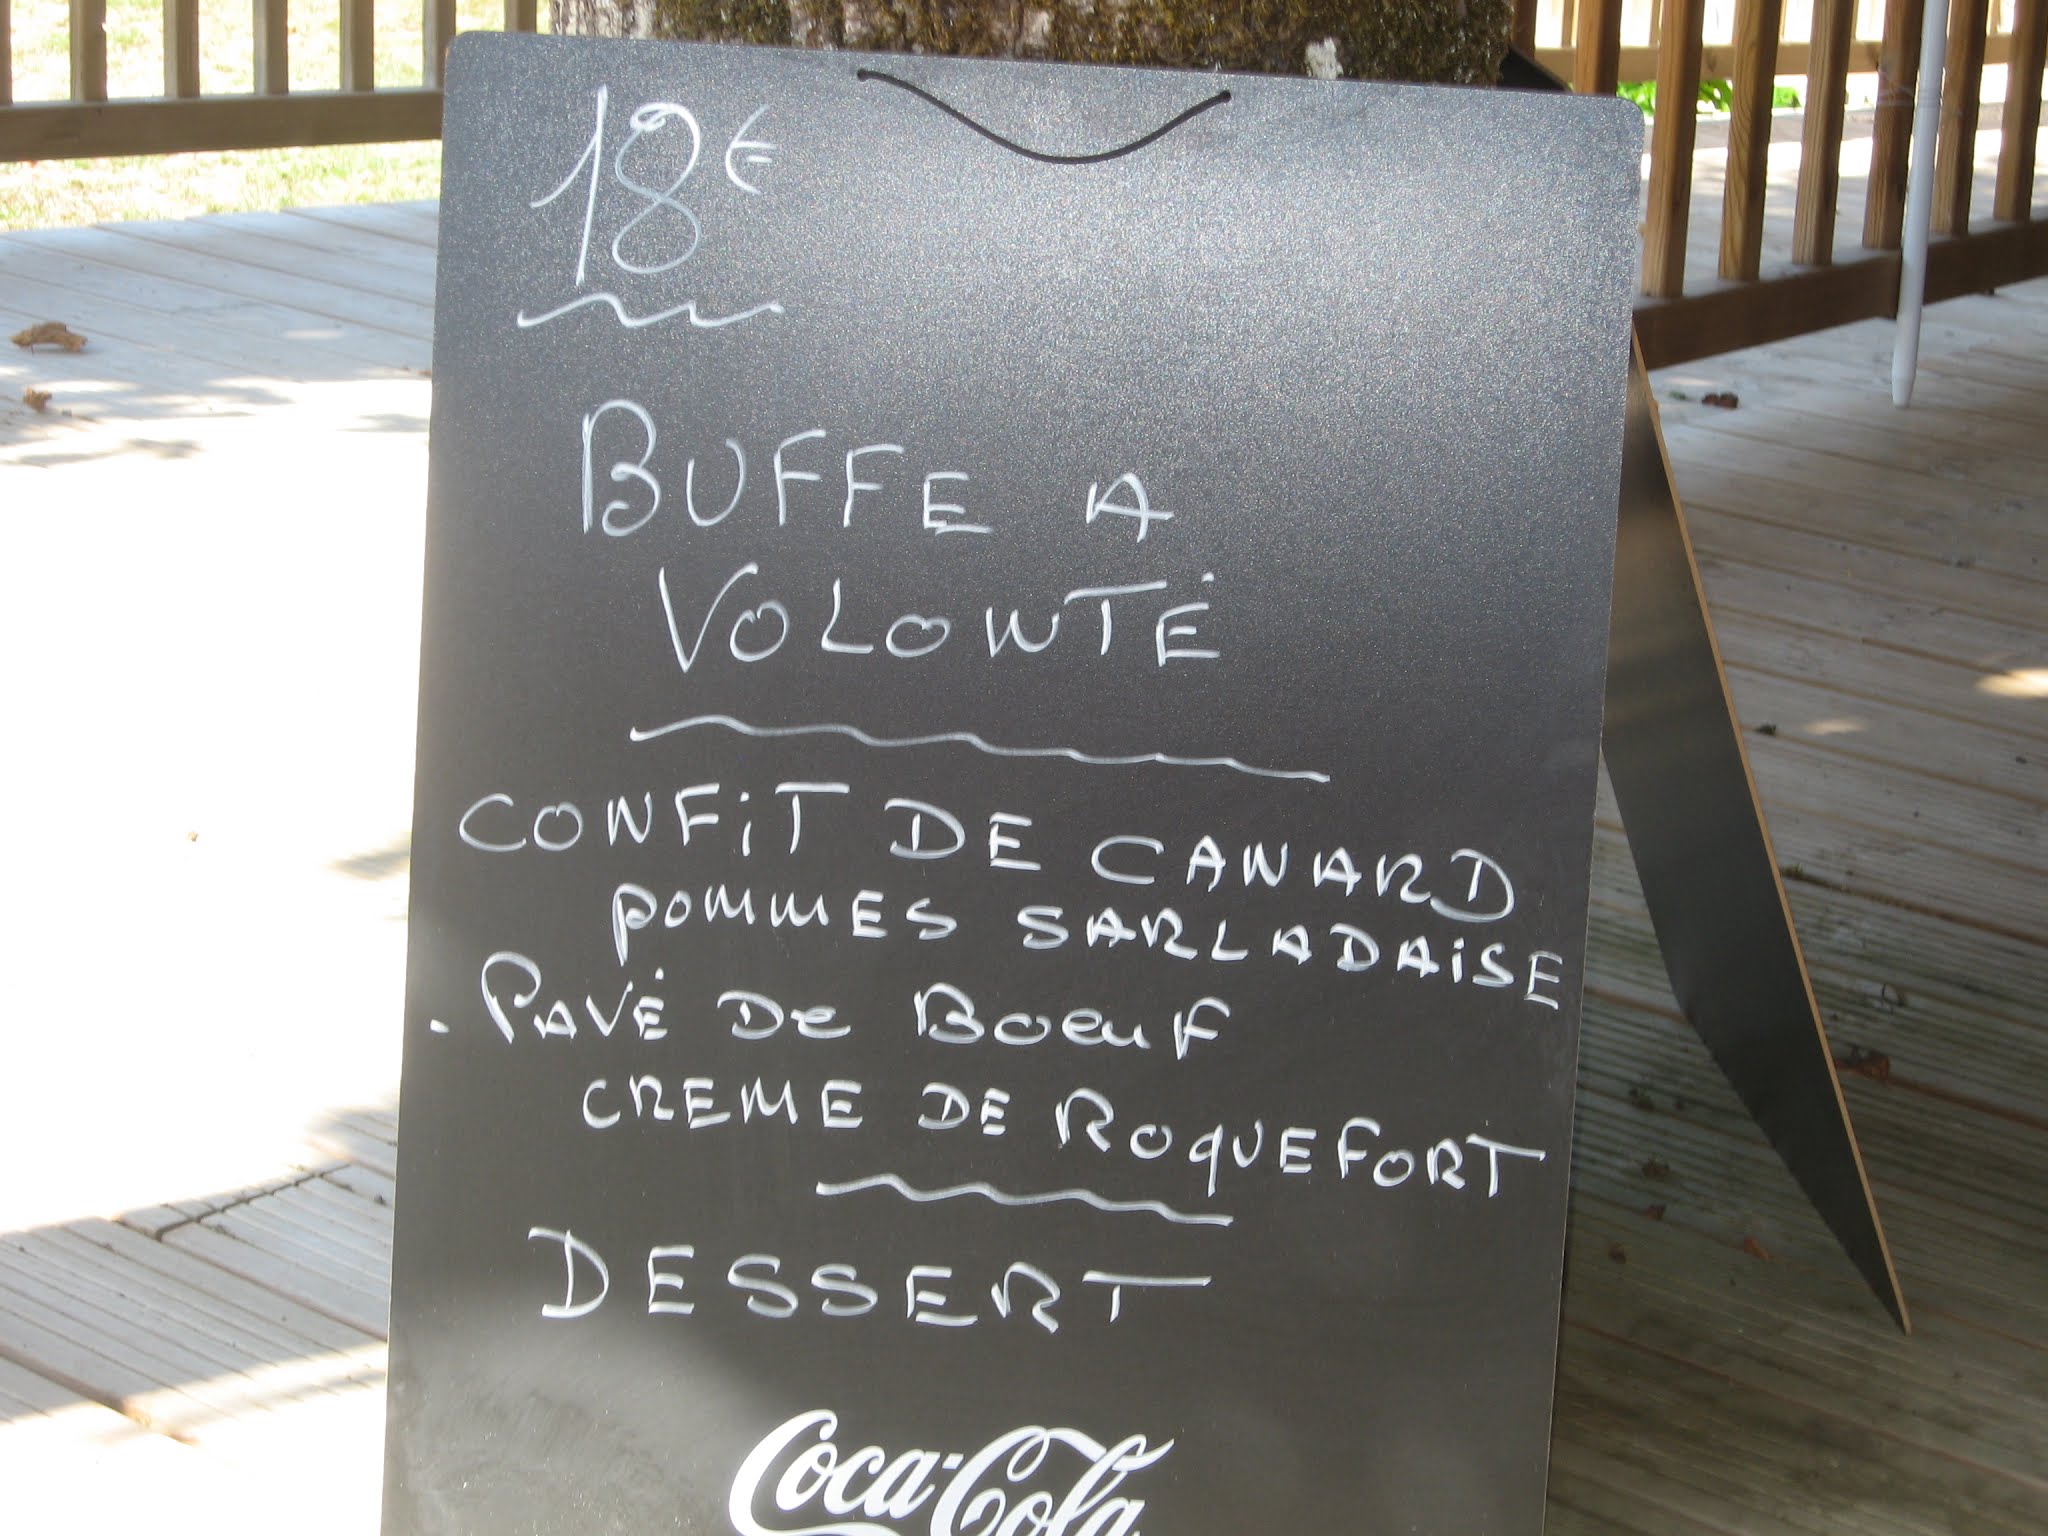 18€
BUFFE A
VOLONTÉ
CONFIT DE CANARD
POMMES SARLADAISE
. PAVÉ De BOEUF
CREME DE ROQUEFORT
DESSERT
Coca-Cola